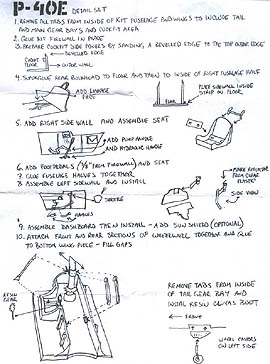 P-40E DETAIL SET
1. REMOVE ALL TABS FROM INSIDE OF KIT FUSELAGE AND WINGS TO INCLUDE TAIL
AND MAIN GEAR BAYS AND COCKPIT AREA
2. GLUE KIT FIREWALL IN PLACE
3. PREPARE COCKPIT SIDE FLOORS BY SANDING A BEVELLED EDGE TO THE TOP OUTER EDGE
BEVELLED EDGE
FRONT FLOOR
OUTER WALL
4. SUPERGLUE REAR BULKHEAD TO FLOOR AND THEN TO INSIDE OF RIGHT FUSELAGE HALF
ADD LINKAGE
FLOOR
PLACE SIDEWALL INSIDE
STRIP ON FLOOR
5. ADD RIGHT SIDE WALL AND ASSEMBLE SEAT
ADD PUMP HANDLE
AND HYDRAULIC HANDLE
6. ADD FOOT PEDALS (1/8" FROM FIREWALL) AND SEAT
7. GLUE FUSELAGE HALVES TOGETHER
8. ASSEMBLE LEFT SIDEWALL AND INSTALL
THROTTLE
HANDLES
MAKE REFLECTOR
FROM CLEAR
PLASTIC
SIDE VIEW
9. ASSEMBLE DASHBOARD THEN INSTALL - ADD SUN SHIELD (OPTIONAL)
10. ATTACH FRONT AND REAR SECTIONS OF UNDERWELL TOGETHER AND GLUE
TO BOTTOM WING PIECE - FILL GAPS
RESIN
GEAR
REMOVE TABS FROM INSIDE
OF TAIL GEAR BAY AND
INSTALL RESIN CANVAS BOOT
FRONT
WHEEL COVERS
ON LEFT SIDE